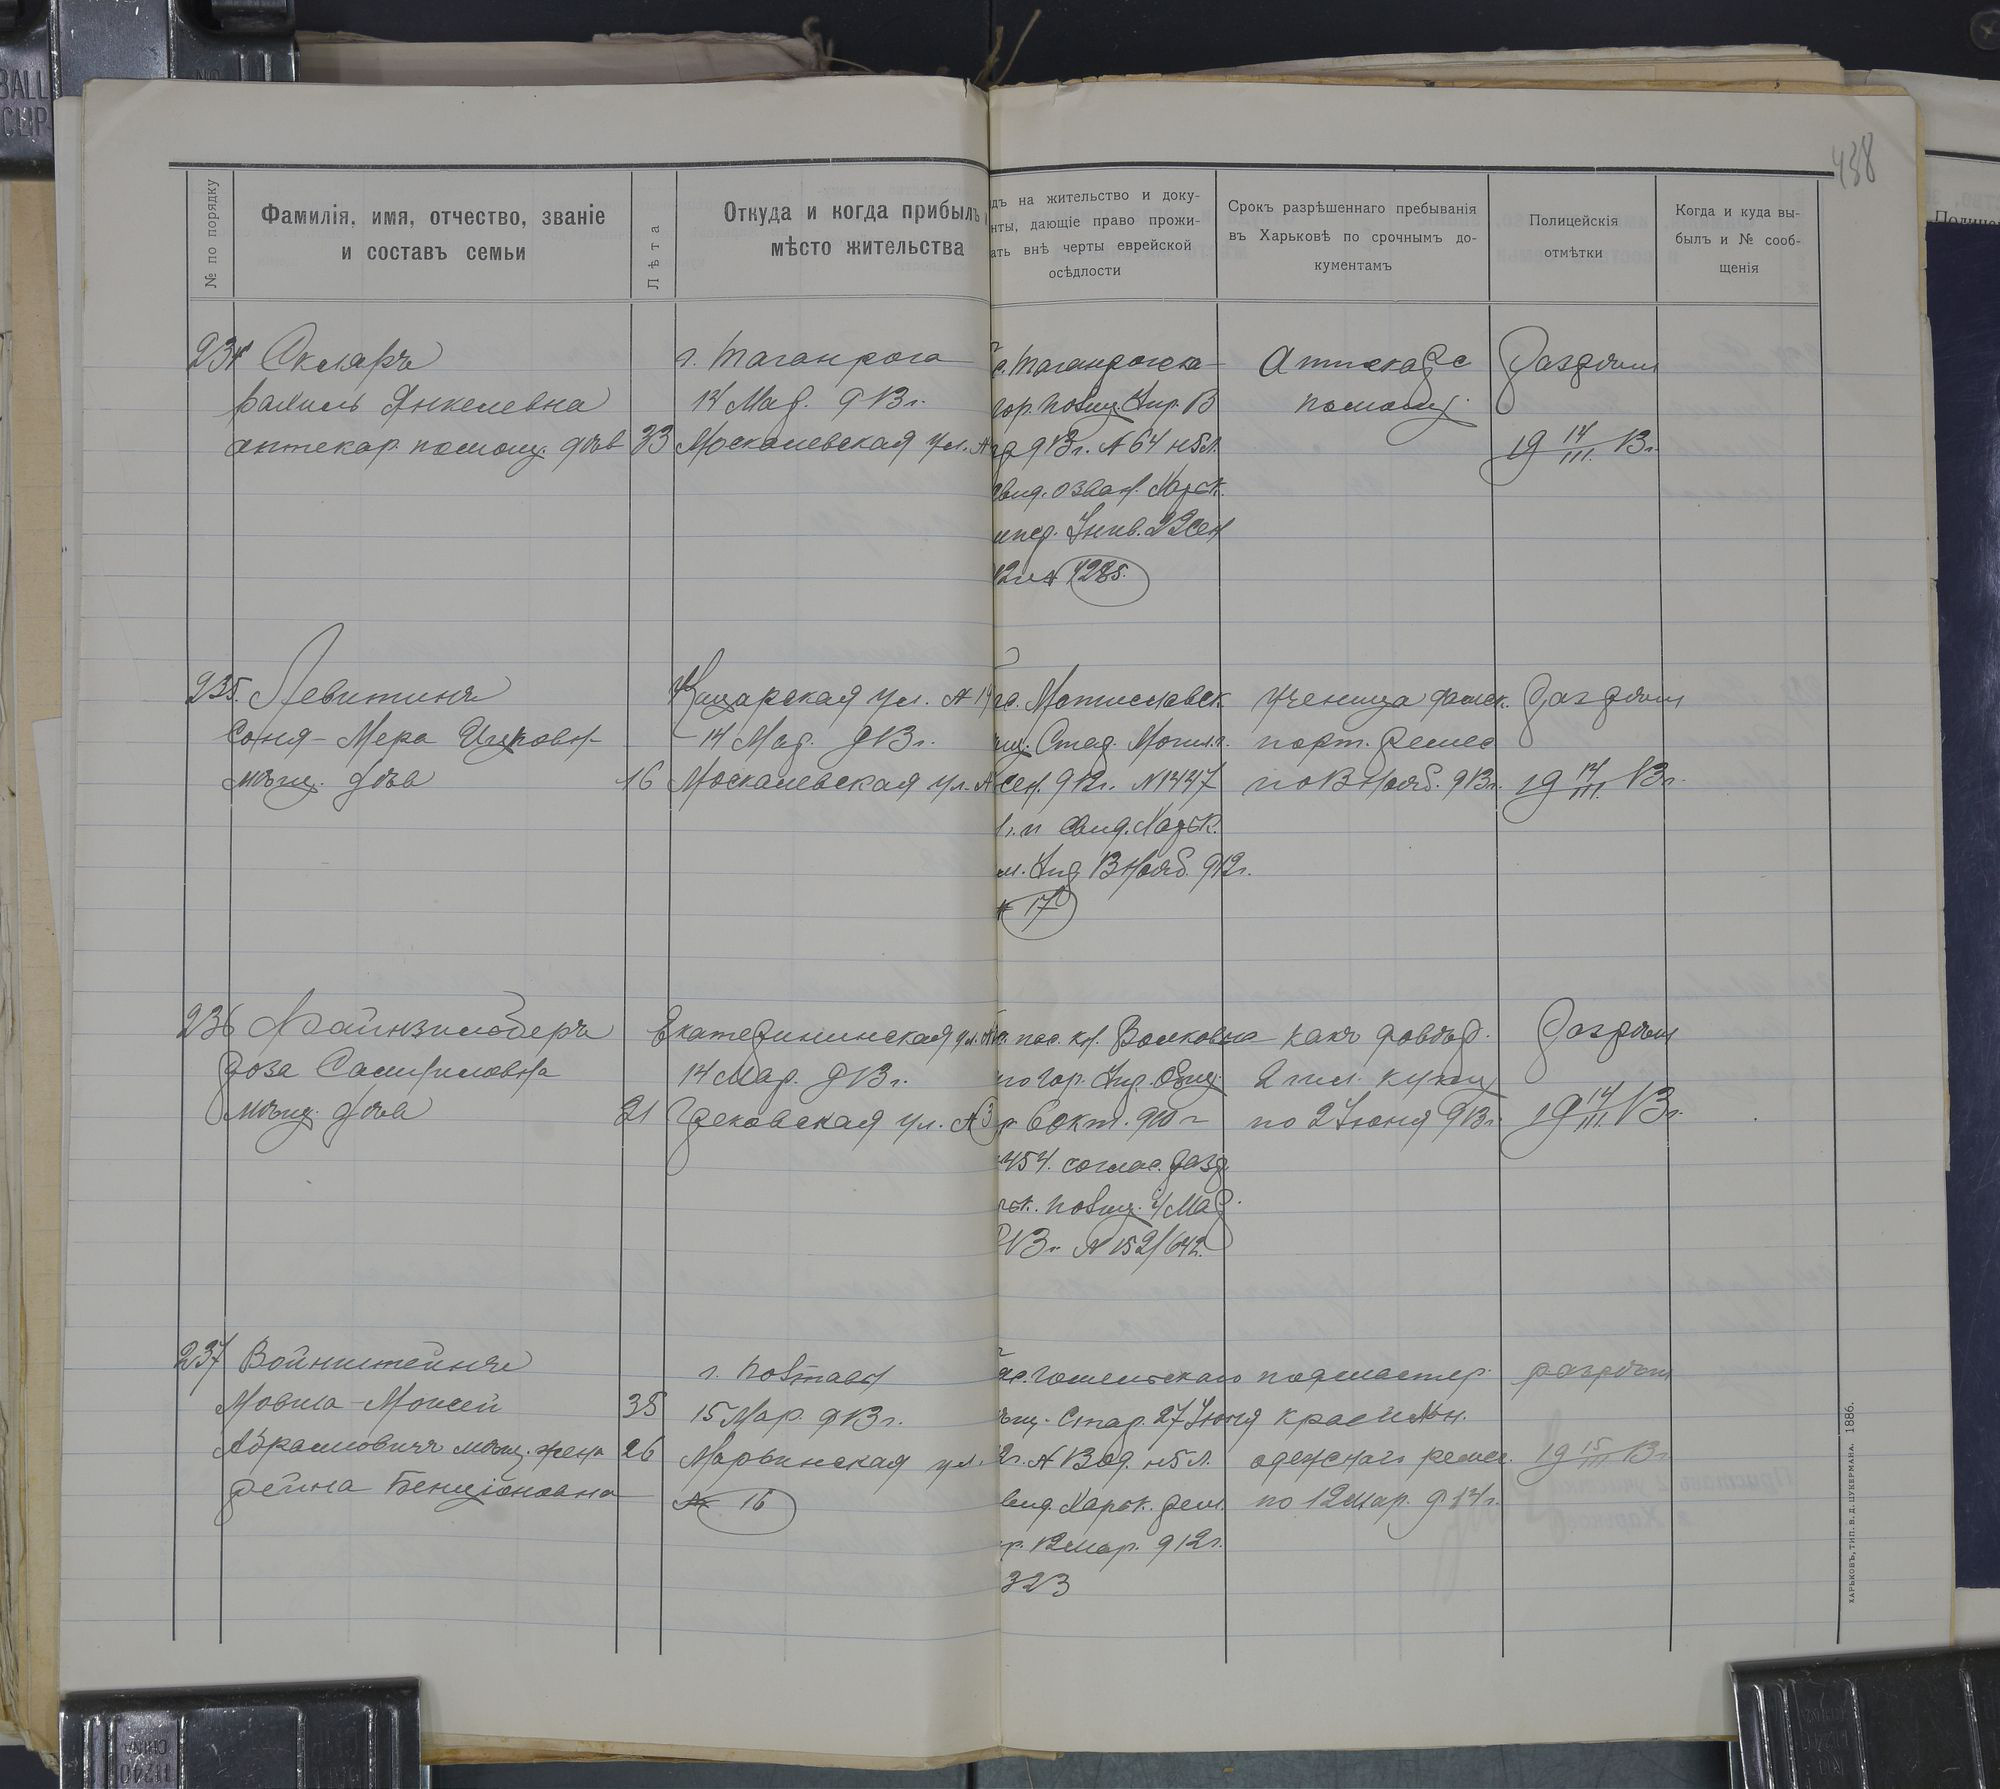 438
№ по порядку
Фамилія, имя, отчество, званіе
и составъ семьи
Лѣта
Откуда и когда прибылъ
мѣсто жительства
дъ на жительство и доку-
нты, дающіе право прожи-
ать внѣ черты еврейской
осѣдлости
Срокъ разрѣшеннаго пребыванія
въ Харьковѣ по срочнымъ до-
кументамъ
Полицейскія
отмѣтки
Когда и куда вы-
былъ и № сооб-
щенія
234 Скляръ
Янкелевна
аптекар. помощ. дѣв 33
г. Таганрога
14 Мар. 913 г.
Москалевская ул. №
с. Таганрогска
гор. полиц. Упр. 13
913 г. № 64 н 5 л.
свид. о зван. Харьк.
импер. Унив. 22 Сен
12 г № 4285.
Аптекарс
помощ.
Разрѣш
19 14/III 13 г.
235. Левитинъ
Соня-Мера Ицковн
мѣщ. дѣв 16
Кацарская ул. № 14
14 Мар. 913 г.
Москалевская ул. №
с. Мстиславск.
мщ. Стар. Могил. г.
сен. 912 г. № 1447
1 г. и Свид. Харьк.
м. Упр 13 Нояб. 912 г.
№ 17
Ученица
порт. ремес
по 13 Нояб. 913 г.
Разрѣш
19 14/III 13 г.
236
Роза
мѣщ. дѣв 21
Екатерининская ул. №
14 Мар. 913 г.
Грековская ул. № 3
пас. кн. Волковы
го гор. Упр. Общ.
6 окт. 910 г
454. соглас. разр.
ьк. полиц. 4 Мар.
913 г. № 152/642.
какъ довѣр.
2 гил. купц
по 2 Іюня 913 г.
Разрѣш
19 14/III 13 г.
237 Войнштейнъ
Мовша-Моисей 38
Абрамовичъ мѣщ. жена 26
Рейна Бенціоновна
г. Полтавы
15 Мар. 913 г.
Марьинская ул.
№ 16
ас. Гомельскаго
мѣщ. Стар. 27 Іюня
2 г. № 13 од. н 5 л.
вид. Харьк. рем.
р. 12 мар. 912 г.
323
подмастер.
красильн.
одежнаго ремес.
по 12 мар. 914 г.
разрѣш
19 15/III 13 г.
ХАРЬКОВЪ, ТИП. В. Д. ЦУКЕРМАНА. 1886.